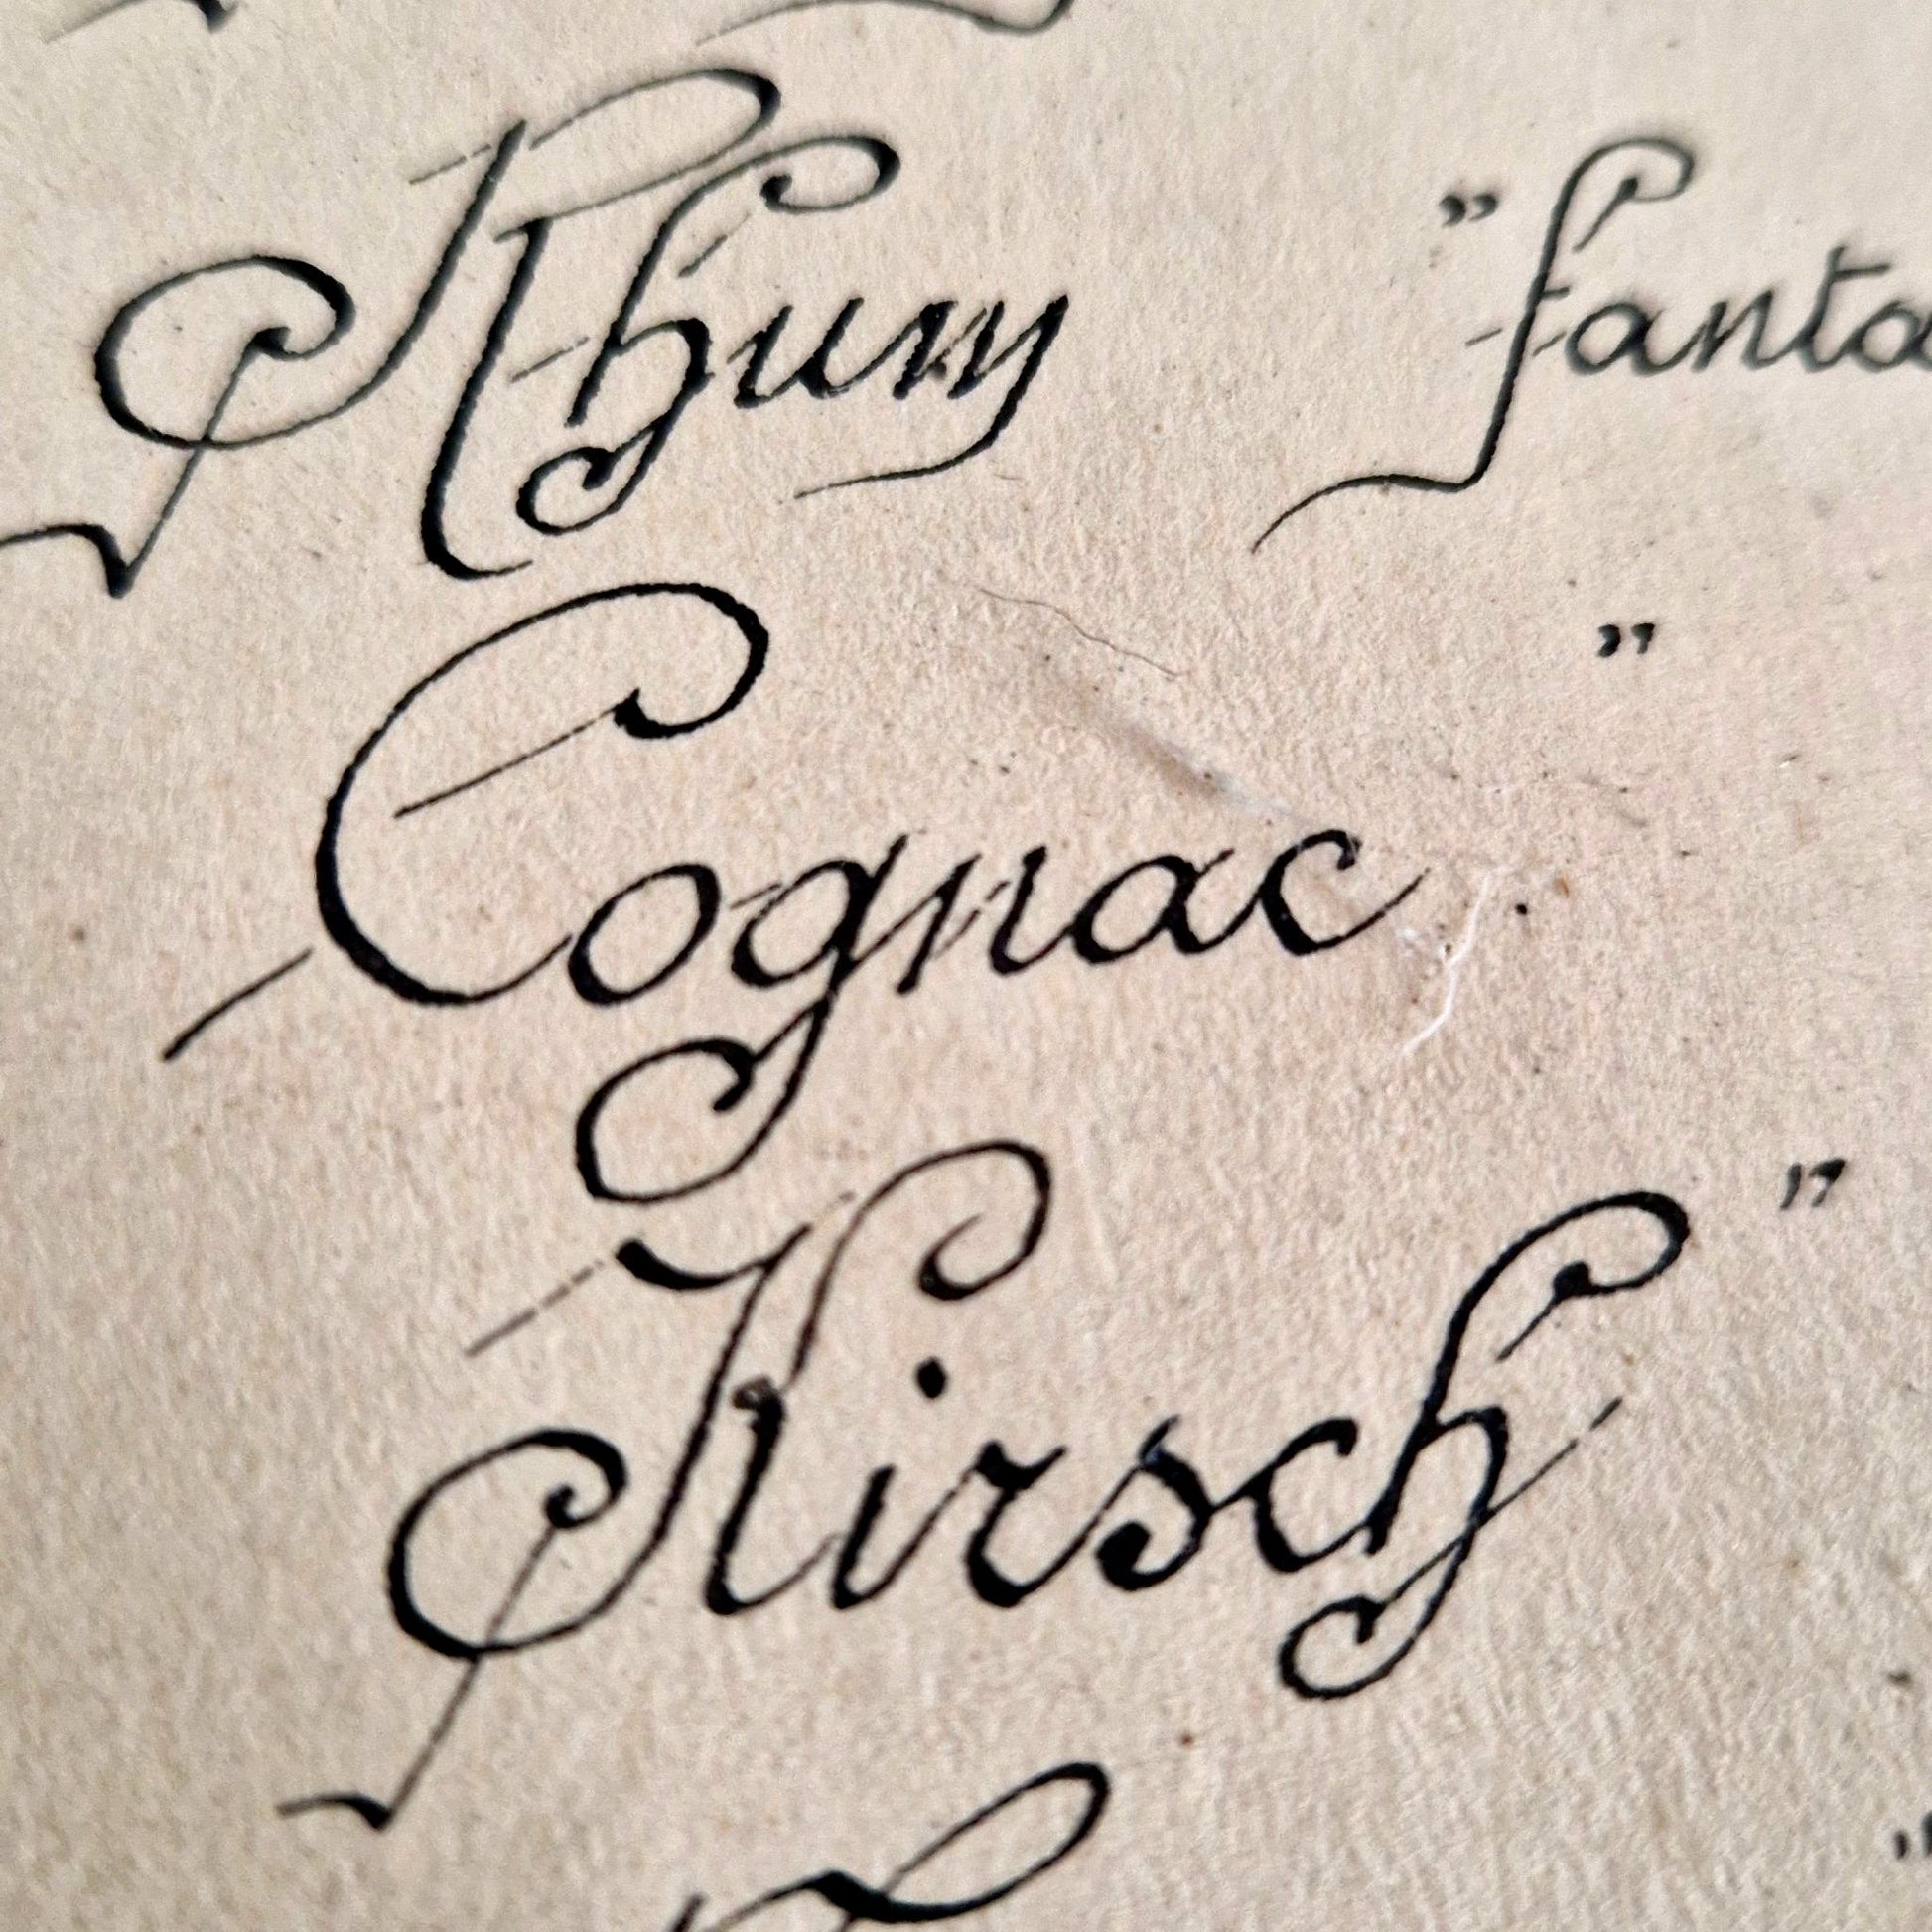 Rhum " fanta
Cognac "
Kirsch "